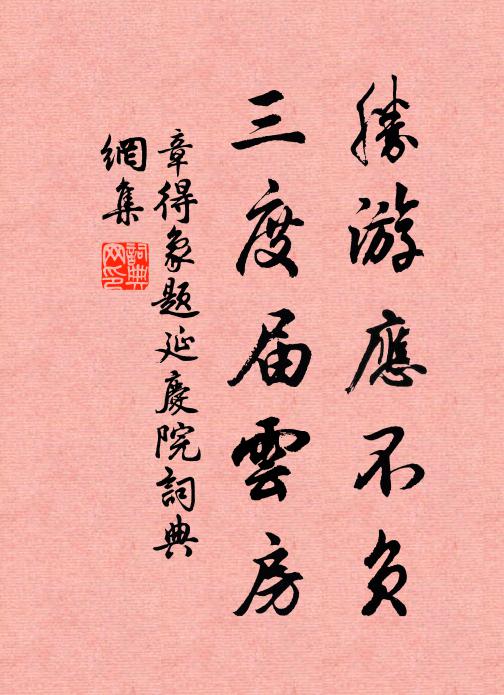 勝游應不負
三度届雲房
章得象題延慶院詞典
網集
詞典
网印